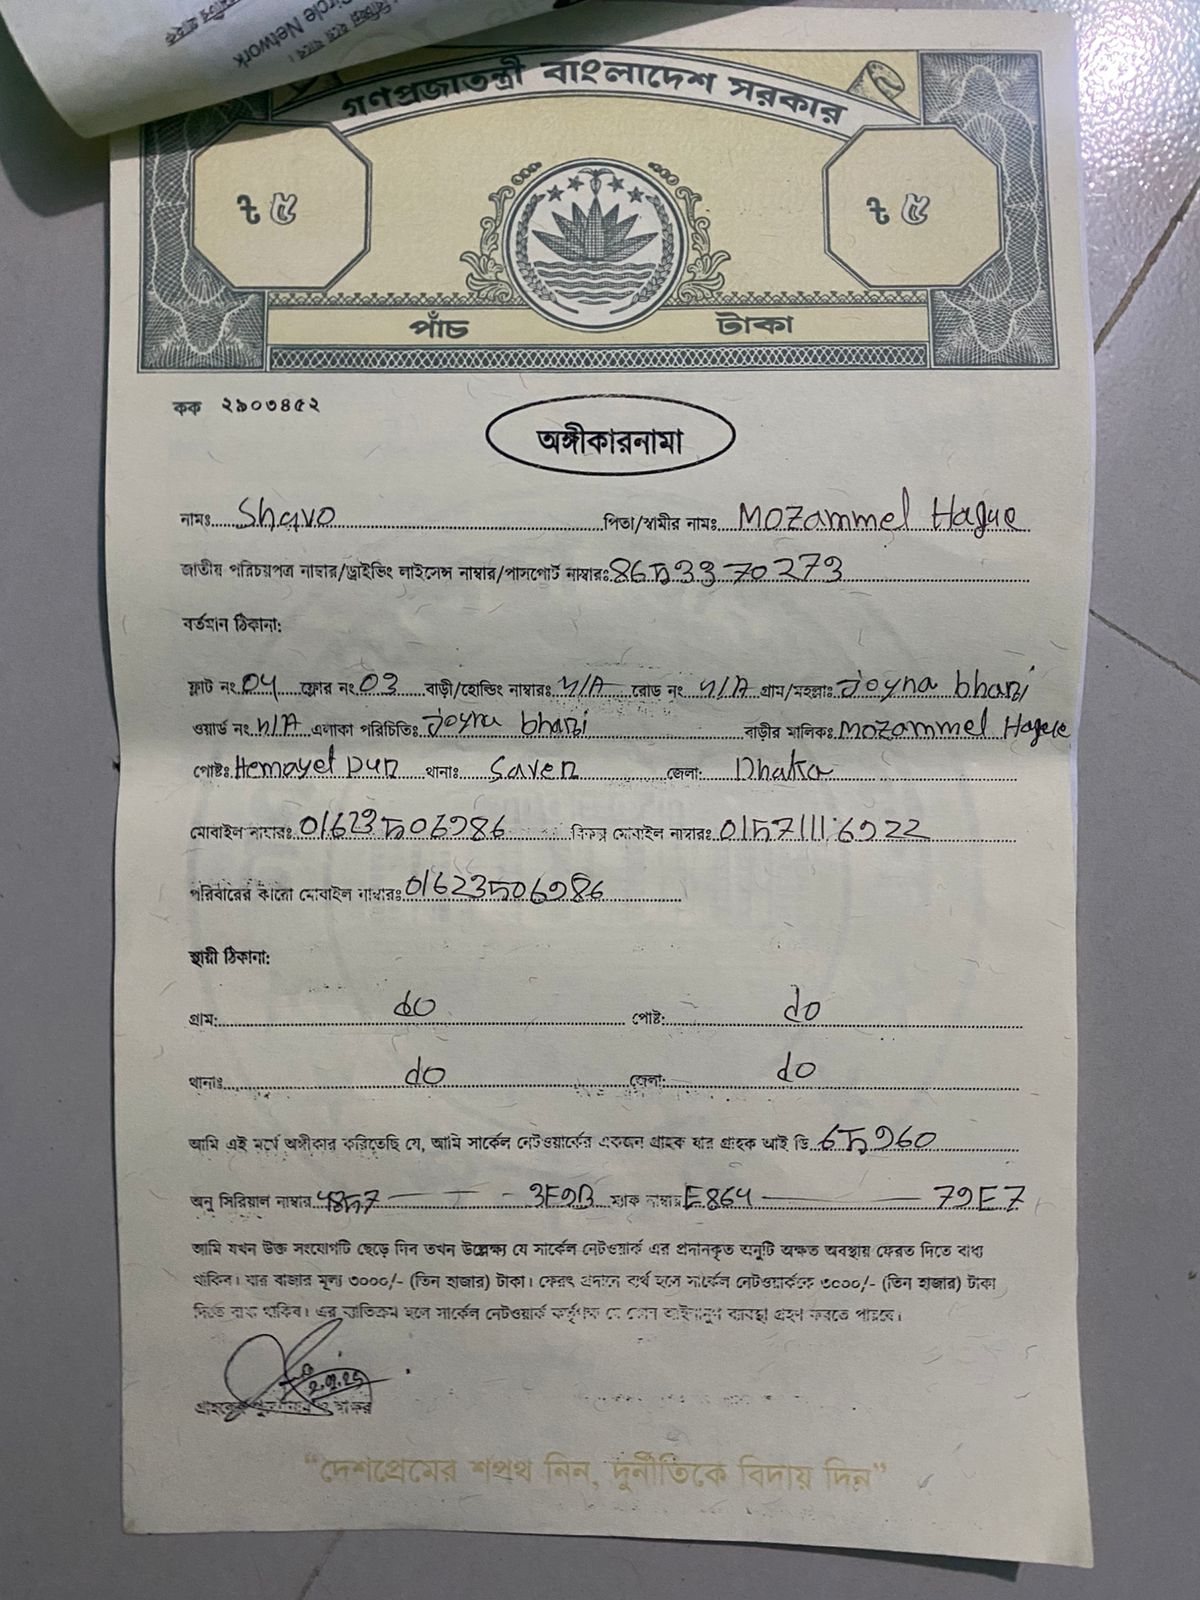 Circle Network
গণপ্রজাতন্ত্রী বাংলাদেশ সরকার
৳ ৫ ৳ ৫
পাঁচ টাকা
কক ২৯০৩৪৫২
অঙ্গীকারনামা
নামঃ Shavo পিতা/স্বামীর নামঃ Mozammel Haque
জাতীয় পরিচয়পত্র নাম্বার/ড্রাইভিং লাইসেন্স নাম্বার/পাসপোর্ট নাম্বারঃ 8653370273
বর্তমান ঠিকানা:
ফ্লাট নং 04 ফ্লোর নং 03 বাড়ী/হোল্ডিং নাম্বারঃ N/A রোড নং N/A গ্রাম/মহল্লাঃ Joyna bhari
ওয়ার্ড নং N/A এলাকা পরিচিতিঃ Joyna bhari বাড়ীর মালিকঃ Mozammel Haque
পোষ্টঃ Hemayet pur থানাঃ Saver জেলা: Dhaka
মোবাইল নাম্বারঃ 01623506986 বিকল্প মোবাইল নাম্বারঃ 01571116922
পরিবারের কারো মোবাইল নাম্বারঃ 01623506986
স্থায়ী ঠিকানা:
গ্রাম: do পোষ্ট: do
থানাঃ do জেলা: do
আমি এই মর্মে অঙ্গীকার করিতেছি যে, আমি সার্কেল নেটওয়ার্কের একজন গ্রাহক যার গ্রাহক আই ডি 65960
অনু সিরিয়াল নাম্বার 4857 — — 3F9B ম্যাক নাম্বার E864 — 79E7
আমি যখন উক্ত সংযোগটি ছেড়ে দিব তখন উল্লেক্ষ্য যে সার্কেল নেটওয়ার্ক এর প্রদানকৃত অনুটি অক্ষত অবস্থায় ফেরত দিতে বাধ্য
থাকিব। যার বাজার মূল্য ৩০০০/- (তিন হাজার) টাকা। ফেরৎ প্রদানে ব্যর্থ হলে সার্কেল নেটওয়ার্ককে ৩০০০/- (তিন হাজার) টাকা
দিতে বাধ্য থাকিব। এর ব্যতিক্রম হলে সার্কেল নেটওয়ার্ক কর্তৃপক্ষ যে কোন আইনানুগ ব্যবস্থা গ্রহণ করতে পারবে।
"দেশপ্রেমের শপথ নিন, দুর্নীতিকে বিদায় দিন"